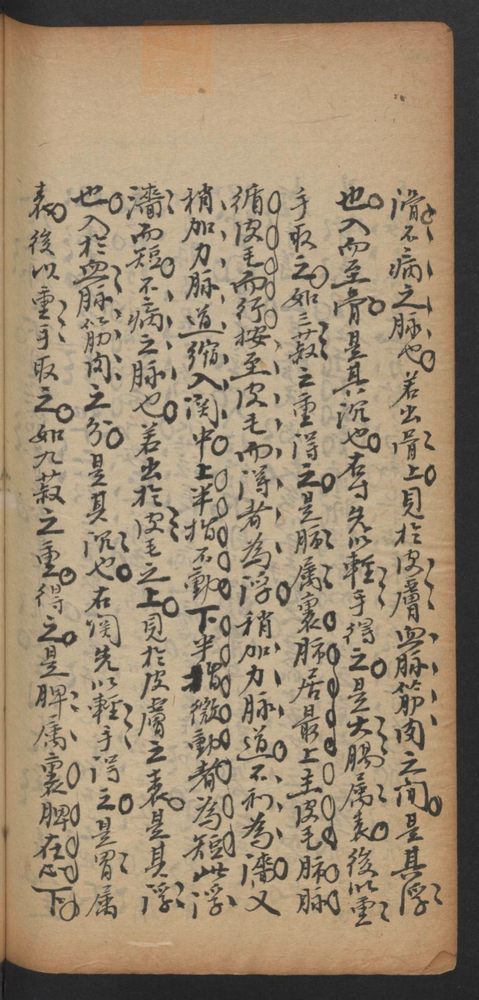 滑不病之脉也若出骨上見扵皮膚血脉筋肉之间是其浮
也入而至骨是其沉也右寸先以輕手得之是大腸属表後以重
手取之如三菽之重得之是肺属裏肺居最上主皮毛肺脉
循皮毛而行按至皮毛而得者為浮稍加力脉道不利為濇又
稍加力脉道縮入関中上半指不動下半指微動者為短此浮
濇而短不病之脉也若出扵皮毛之上見扵皮膚之表是其浮
也入扵血脉筋肉之分是其沉也右関先以輕手得之是胃属
表後以重手取之如九菽之重得之是脾属裏脾在心下